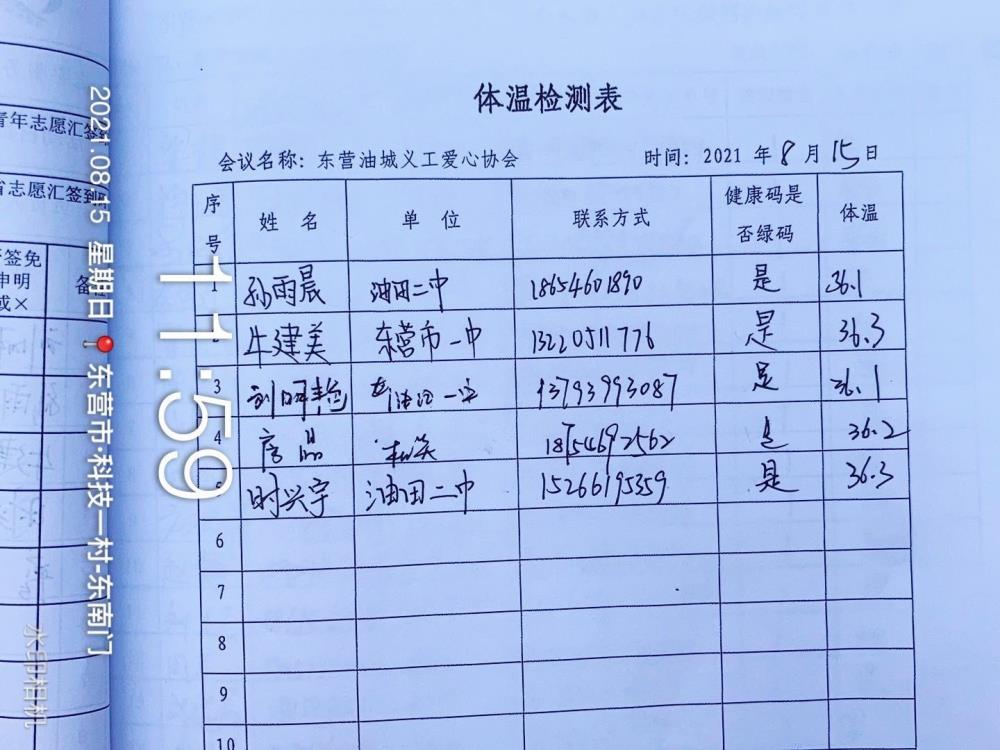 体温检测表
会议名称：东营油城义工爱心协会 时间：2021 年 8 月 15 日
序号 姓 名 单 位 联系方式 健康码是否绿码 体温
1 孙雨晨 油田二中 18654601890 是 36.1
2 牛建美 东营市一中 13220511776 是 36.3
3 13793993087 是 36.1
4 18754692562 是 36.2
5 时兴宇 油田二中 15266195359 是 36.3
6
7
8
9
10
青年志愿汇签到
省志愿汇签到
签免
申明
或×
备
11:59
2021.08.15 星期日 东营市·科技一村-东南门
水印相机